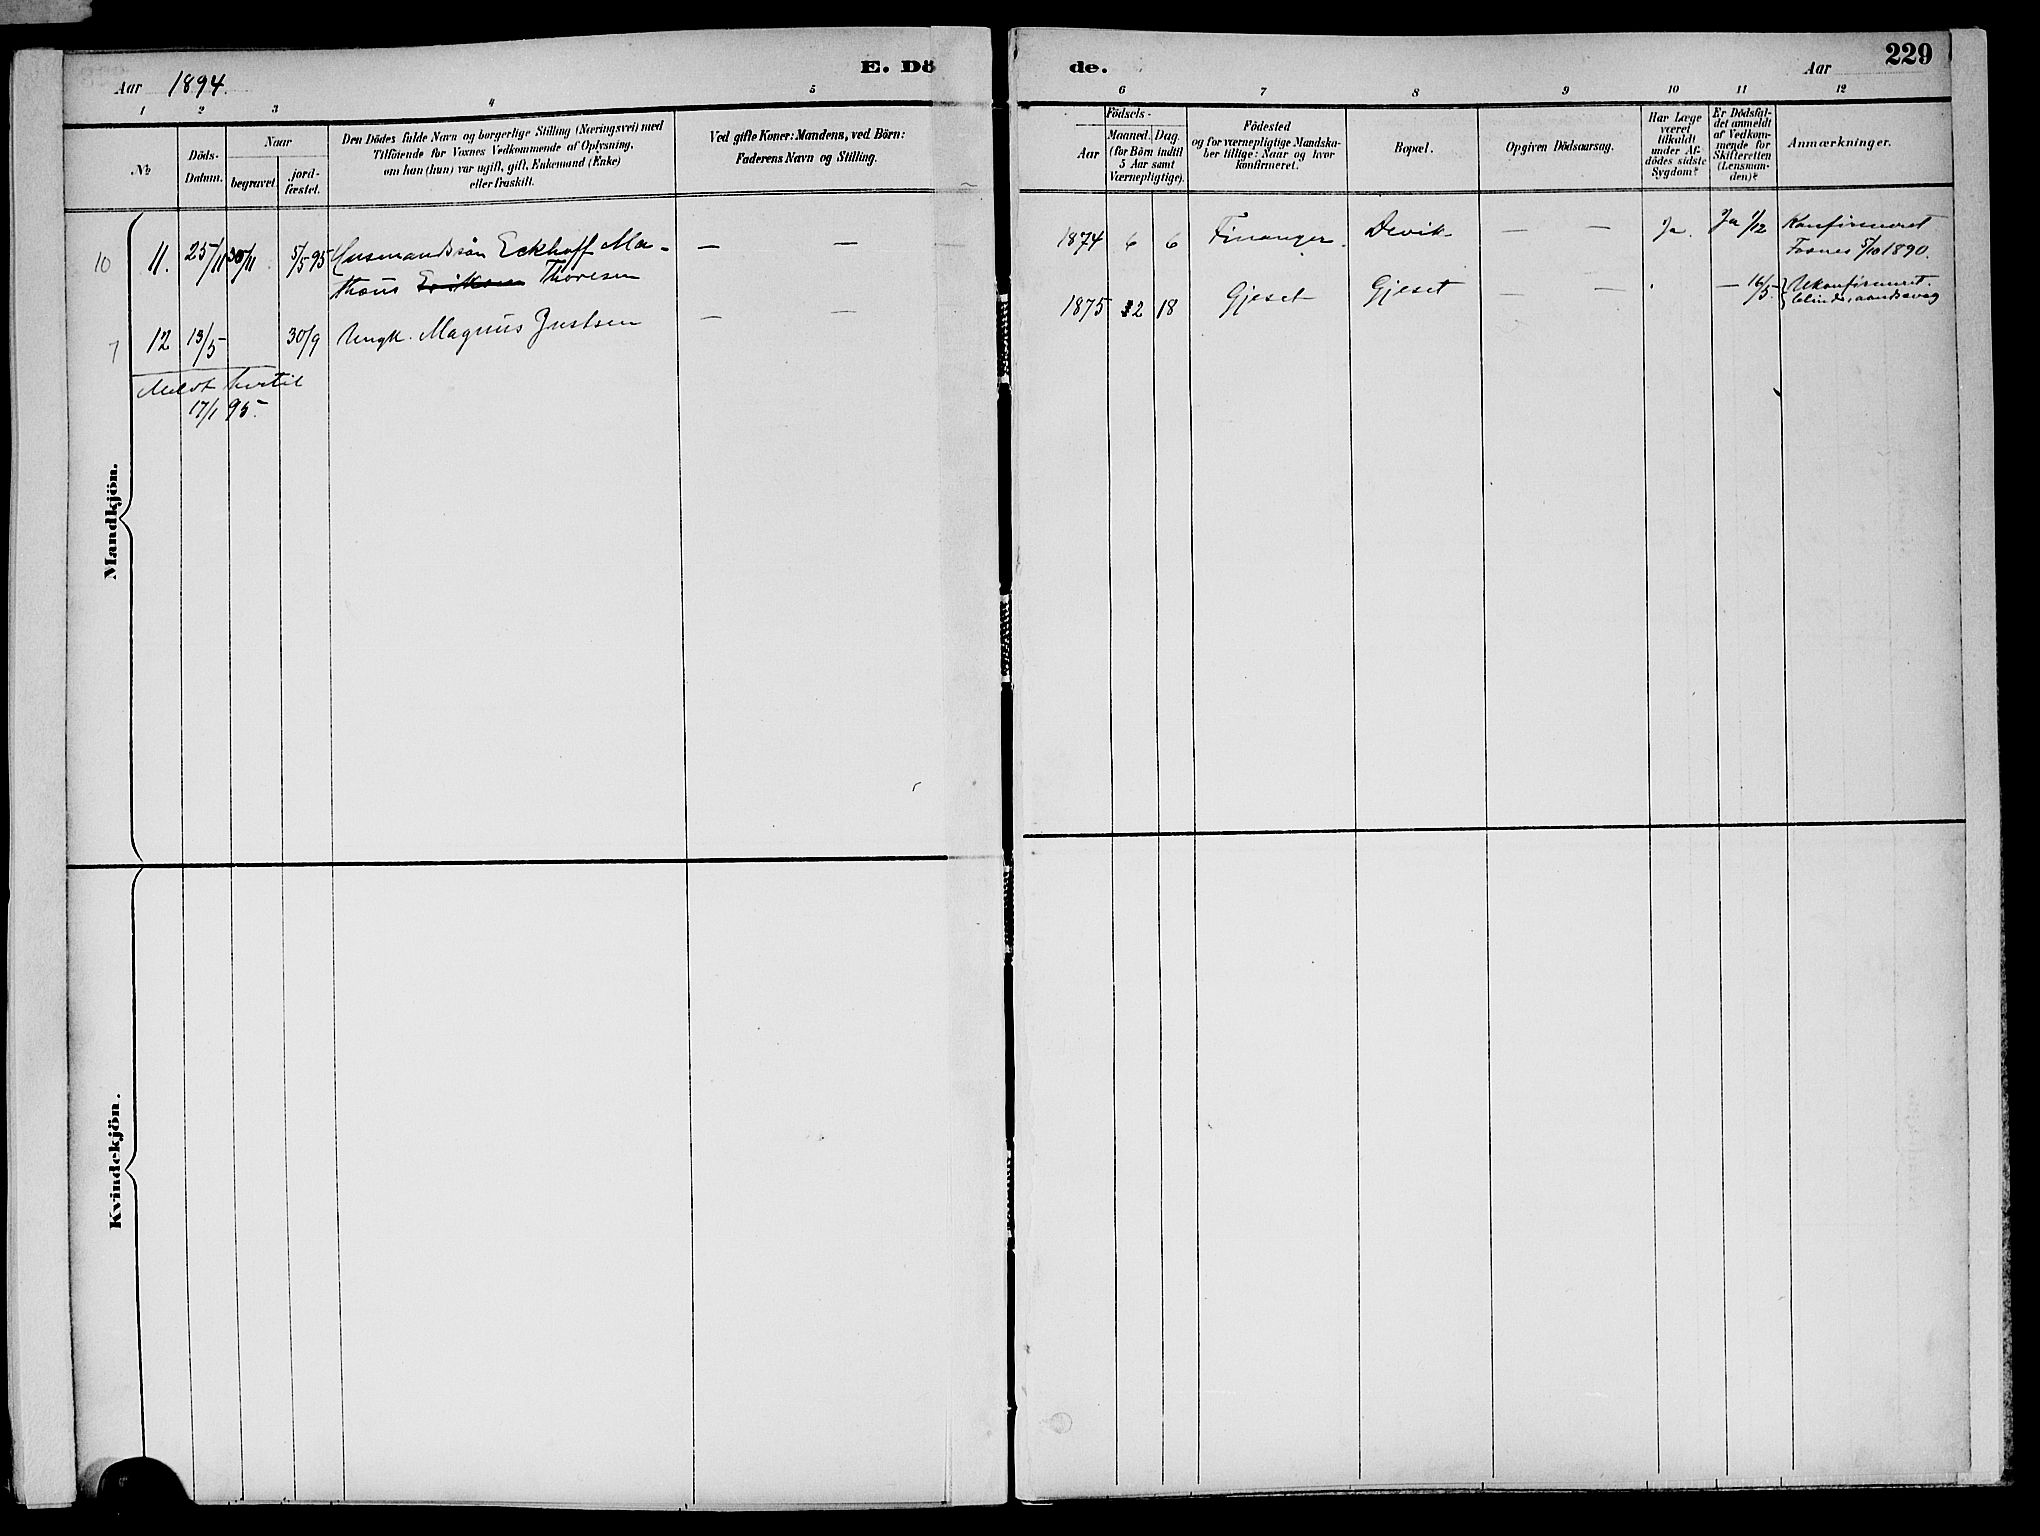 Aar 1894.
E. Dö
de.
Aar
229
1 2 3 4 5
6 7 8 9 10 11 12
№
Döds-
Datum.
Naar
begravet.
jord-
fæstet.
Den Dödes fulde Navn og borgerlige Stilling (Næringsvei) med
Tilföiende for Voxnes Vedkommende af Oplysning,
om han (hun) var ugift, gift, Enkemand (Enke)
eller fraskilt.
Ved gifte Koner: Mandens, ved Börn:
Faderens Navn og Stilling.
Födsels-
Aar
Maaned.
Dag.
(for Börn indtil
5 Aar samt
Værnepligtige).
Födested
og for værnepligtige Mandska-
ber tillige: Naar og hvor
konfirmeret.
Bopæl.
Opgiven Dödsaarsag.
Har Læge
været
tilkaldt
under Af-
dödes sidste
Sygdom?
Er Dödsfal-
det anmeldt
af Vedkom-
mende for
Skifteretten
(Lensman-
den)?
Anmærkninger.
Mandkjön.
10 11. 25/11 30/11. 5/5 95 Husmandssön Eckhoff Ma-
thæus Thoresen
— —
1874 6 6 Finanger. Devik — — Ja. Ja 1/12 Konfirmeret
Fosnes 5/10 1890.
7 12 13/5 30/9 Ungk. Magnus Justsen
— —
1875 12 18 Gjeset Gjeset — — — 16/5. Ukonfirmeret.
blind, aandssvag
Meldt hertil
17/1 95.
Kvindekjön.